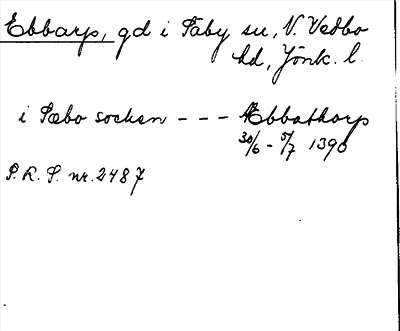 Ebbarp, gd i Säby sn, N. Vedbo
hd, Jönk. l.
i Sæbo socken - - - Æbbathorp
30/6 - 5/7 1390
P.R.S. nr. 2487